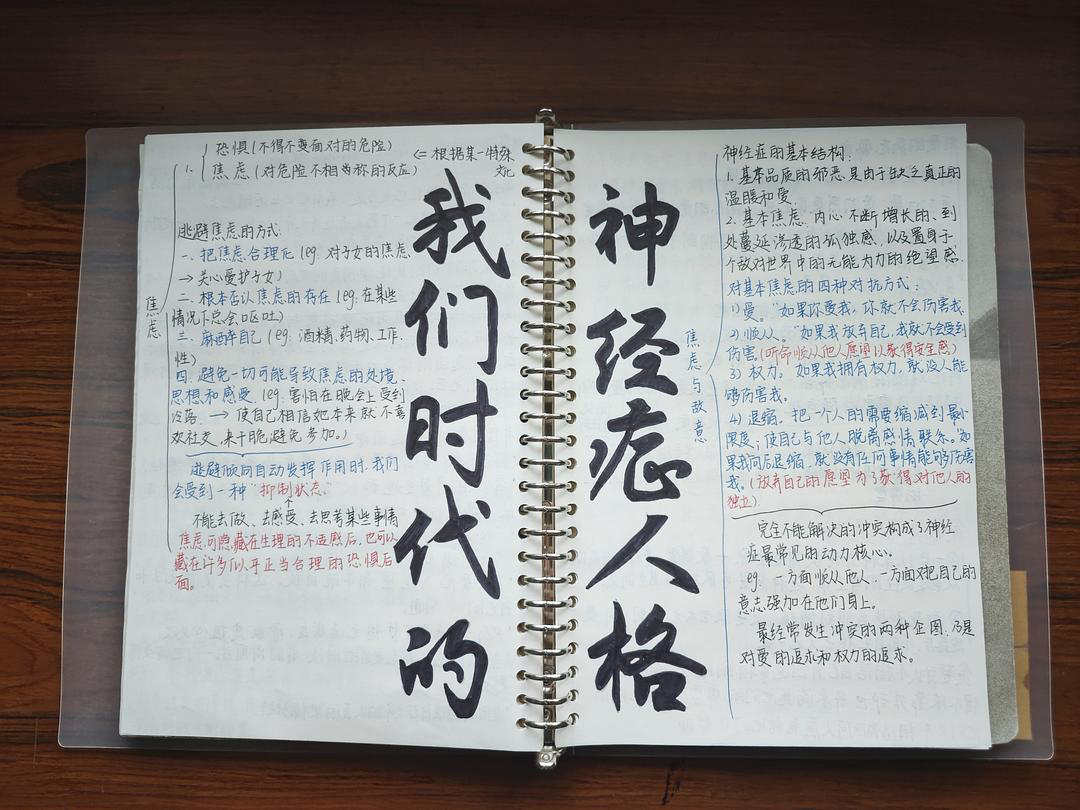 焦虑
1.
恐惧(不得不要面对的危险)
焦虑(对危险不相当称的反应)
<= 根据某一特殊
文化
逃避焦虑的方式:
一、把焦虑合理化(eg: 对子女的焦虑
→ 关心爱护子女)
二、根本否认焦虑的存在(eg:在某些
情况下总会呕吐)
三、麻醉自己(eg: 酒精、药物、工作、
性)
四、避免一切可能导致焦虑的处境、
思想和感受.(eg: 害怕在晚会上受到
冷落. → 使自己相信她本来就不喜
欢社交,来干脆避免参加。)
逃避倾向自动发挥作用时,我们
会受到一种"抑制状态"
不能去做、去感受、去思考某些事情
焦虑可隐藏在生理的不适感后,也可以
藏在许多似乎正当合理的恐惧后
面。
我们时代的
神经症人格
焦虑与敌意
神经症的基本结构:
1. 基本品质的邪恶是由于缺乏真正的
温暖和爱.
2. 基本焦虑: 内心不断增长的、到
处蔓延渗透的孤独感,以及置身于一
个敌对世界中的无能为力的绝望感.
对基本焦虑的四种对抗方式:
1) 爱. "如果你爱我,你就不会伤害我.
2) 顺从. "如果我放弃自己,我就不会受到
伤害.(听命顺从他人愿望以获得安全感)
3) 权力. "如果我拥有权力,就没人能
够伤害我.
4) 退缩. 把一个人的需要缩减到最小
限度,使自己与他人脱离感情联系."如
果我向后退缩,就没有任何事情能够伤害
我.(放弃自己的愿望为了获得对他人的
独立).
完全不能解决的冲突构成了神经
症最常见的动力核心.
eg: 一方面顺从他人,一方面对把自己的
意志强加在他们身上。
最经常发生冲突的两种企图,乃是
对爱的追求和权力的追求。